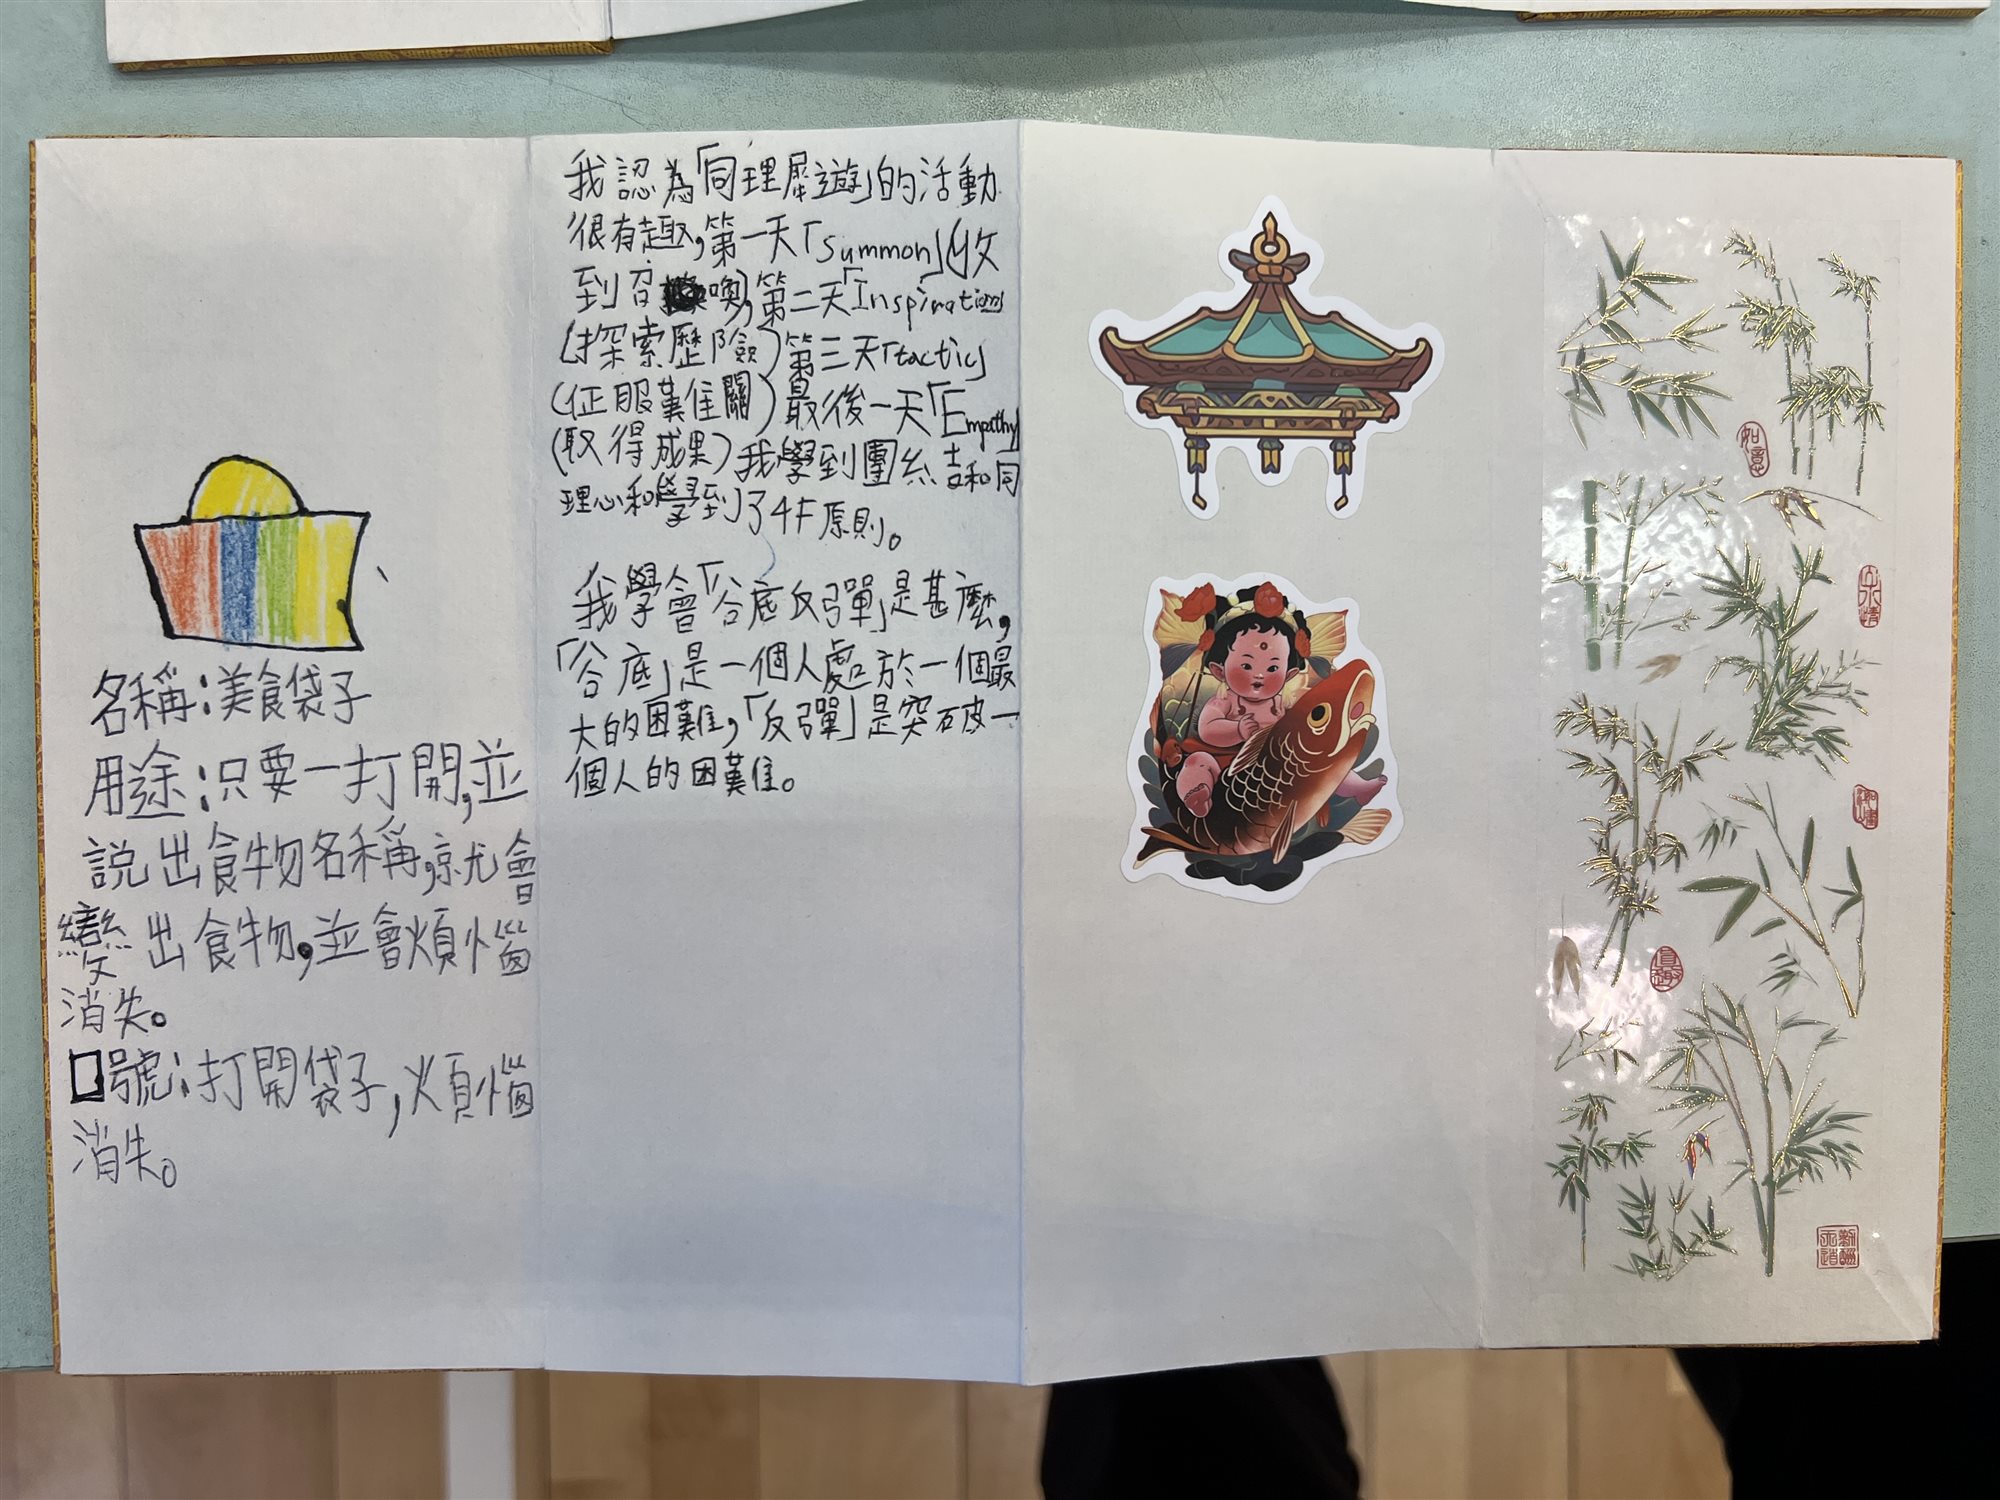 名稱：美食袋子
用途：只要一打開，並
說出食物名稱，就會
變出食物，並會煩惱
消失。
口號：打開袋子，煩惱
消失。
我認為「同理犀遊」的活動
很有趣，第一天「Summon」(收
到召喚)，第二天「Inspiration」
(探索歷險)第三天「tactic」
(征服難關)最後一天「Empathy」
(取得成果)我學到團結和同
理心和學到了4F原則。
我學會「谷底反彈」是甚麼，
「谷底」是一個人處於一個最
大的困難，「反彈」是突破一
個人的困難。
如意